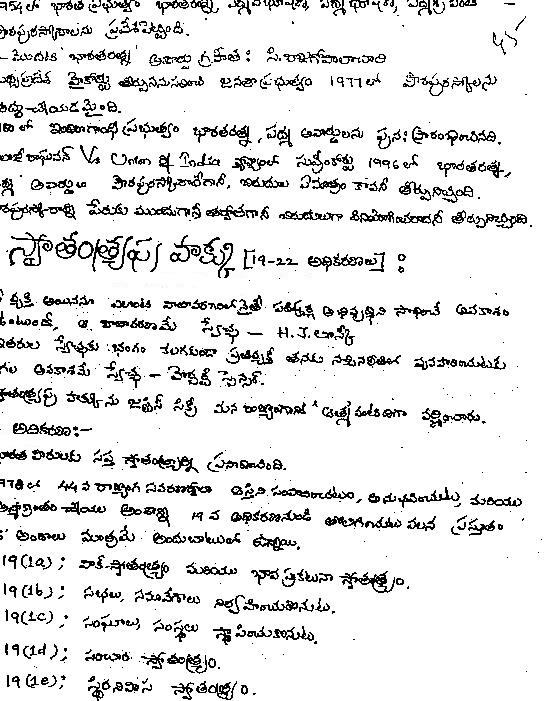 1954లో భారత ప్రభుత్వం భారతరత్న, పద్మవిభూషణ్, పద్మభూషణ్, పద్మశ్రీ వంటి
పౌరపురస్కారాలను ప్రవేశపెట్టింది.
45
- మొదటి 'భారతరత్న' అవార్డు గ్రహీత : సి.రాజగోపాలాచారి
మధ్యప్రదేశ్ హైకోర్టు తీర్పుననుసరించి జనతాప్రభుత్వం 1977లో పౌరపురస్కారాలను
రద్దు చేయడమైంది.
లో ఇందిరాగాంధీ ప్రభుత్వం భారతరత్న, పద్మ అవార్డులను పునఃప్రారంభించినది.
బాలాజీ రాఘవన్ Vs Union of India వ్యాజ్యంలో సుప్రీంకోర్టు 1996లో భారతరత్న,
పద్మ అవార్డులు పౌరపురస్కారాలేగానీ, బిరుదులు ఏమాత్రం కావని తీర్పునిచ్చింది.
పురస్కారాన్ని పేరుకు ముందుగానీ తర్వాతగానీ బిరుదులుగా వినియోగించరాదని తీర్పునిచ్చింది.
స్వాతంత్ర్యపు హక్కు [19-22 అధికరణలు] :
వ్యక్తి అయినను ఎటువంటి వాతావరణంలోనైతే పరిపూర్ణ అభివృద్ధిని సాధించే అవకాశం
ఉంటుందో, ఆ వాతావరణమే స్వేచ్ఛ - H.J.లాస్కీ
ఇతరుల స్వేచ్ఛకు భంగం కలుగకుండా ప్రతివ్యక్తి తనకు నచ్చినరీతిలో వ్యవహరించుటకు
గల అవకాశమే స్వేచ్ఛ - హెర్బర్ట్ స్పెన్సర్.
స్వాతంత్ర్యపు హక్కును జస్టిస్ సిక్రీ మన రాజ్యాంగానికి 'ఆత్మ' వంటిదిగా వర్ణించారు.
అధికరణ:-
భారత పౌరులకు సప్త స్వాతంత్ర్యాన్ని ప్రసాదించింది.
1978లో 44వ రాజ్యాంగ సవరణద్వారా ఆస్తిని సంపాదించుటం, అనుభవించుట మరియు
చేయు అంశాన్ని 19వ అధికరణనుండి తొలగించుట వలన ప్రస్తుతం
6 అంశాలు మాత్రమే అందుబాటులో ఉన్నాయి.
19(1a) ; వాక్-స్వాతంత్ర్యం మరియు భావ ప్రకటనా స్వాతంత్ర్యం.
19(1b) ; సభలు, సమావేశాలు నిర్వహించుకొనుట.
19(1c) ; సంఘాలు, సంస్థలు స్థాపించుకొనుట.
19(1d) ; సంచార స్వాతంత్ర్యం.
19(1e) ; స్థిరనివాస స్వాతంత్ర్యం.